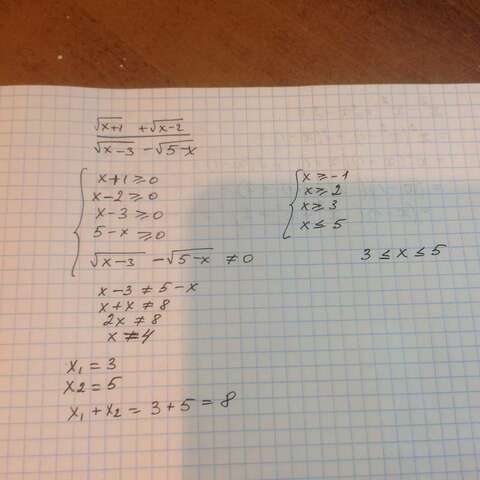 √x+1 + √x-2
√x-3 - √5-x
x+1≥0
x-2≥0
x-3≥0
5-x≥0
√x-3 - √5-x ≠0
x≥-1
x≥2
x≥3
x≤5
3≤x≤5
x-3≠5-x
x+x≠8
2x≠8
x≠4
x₁=3
x2=5
x₁+x₂=3+5=8